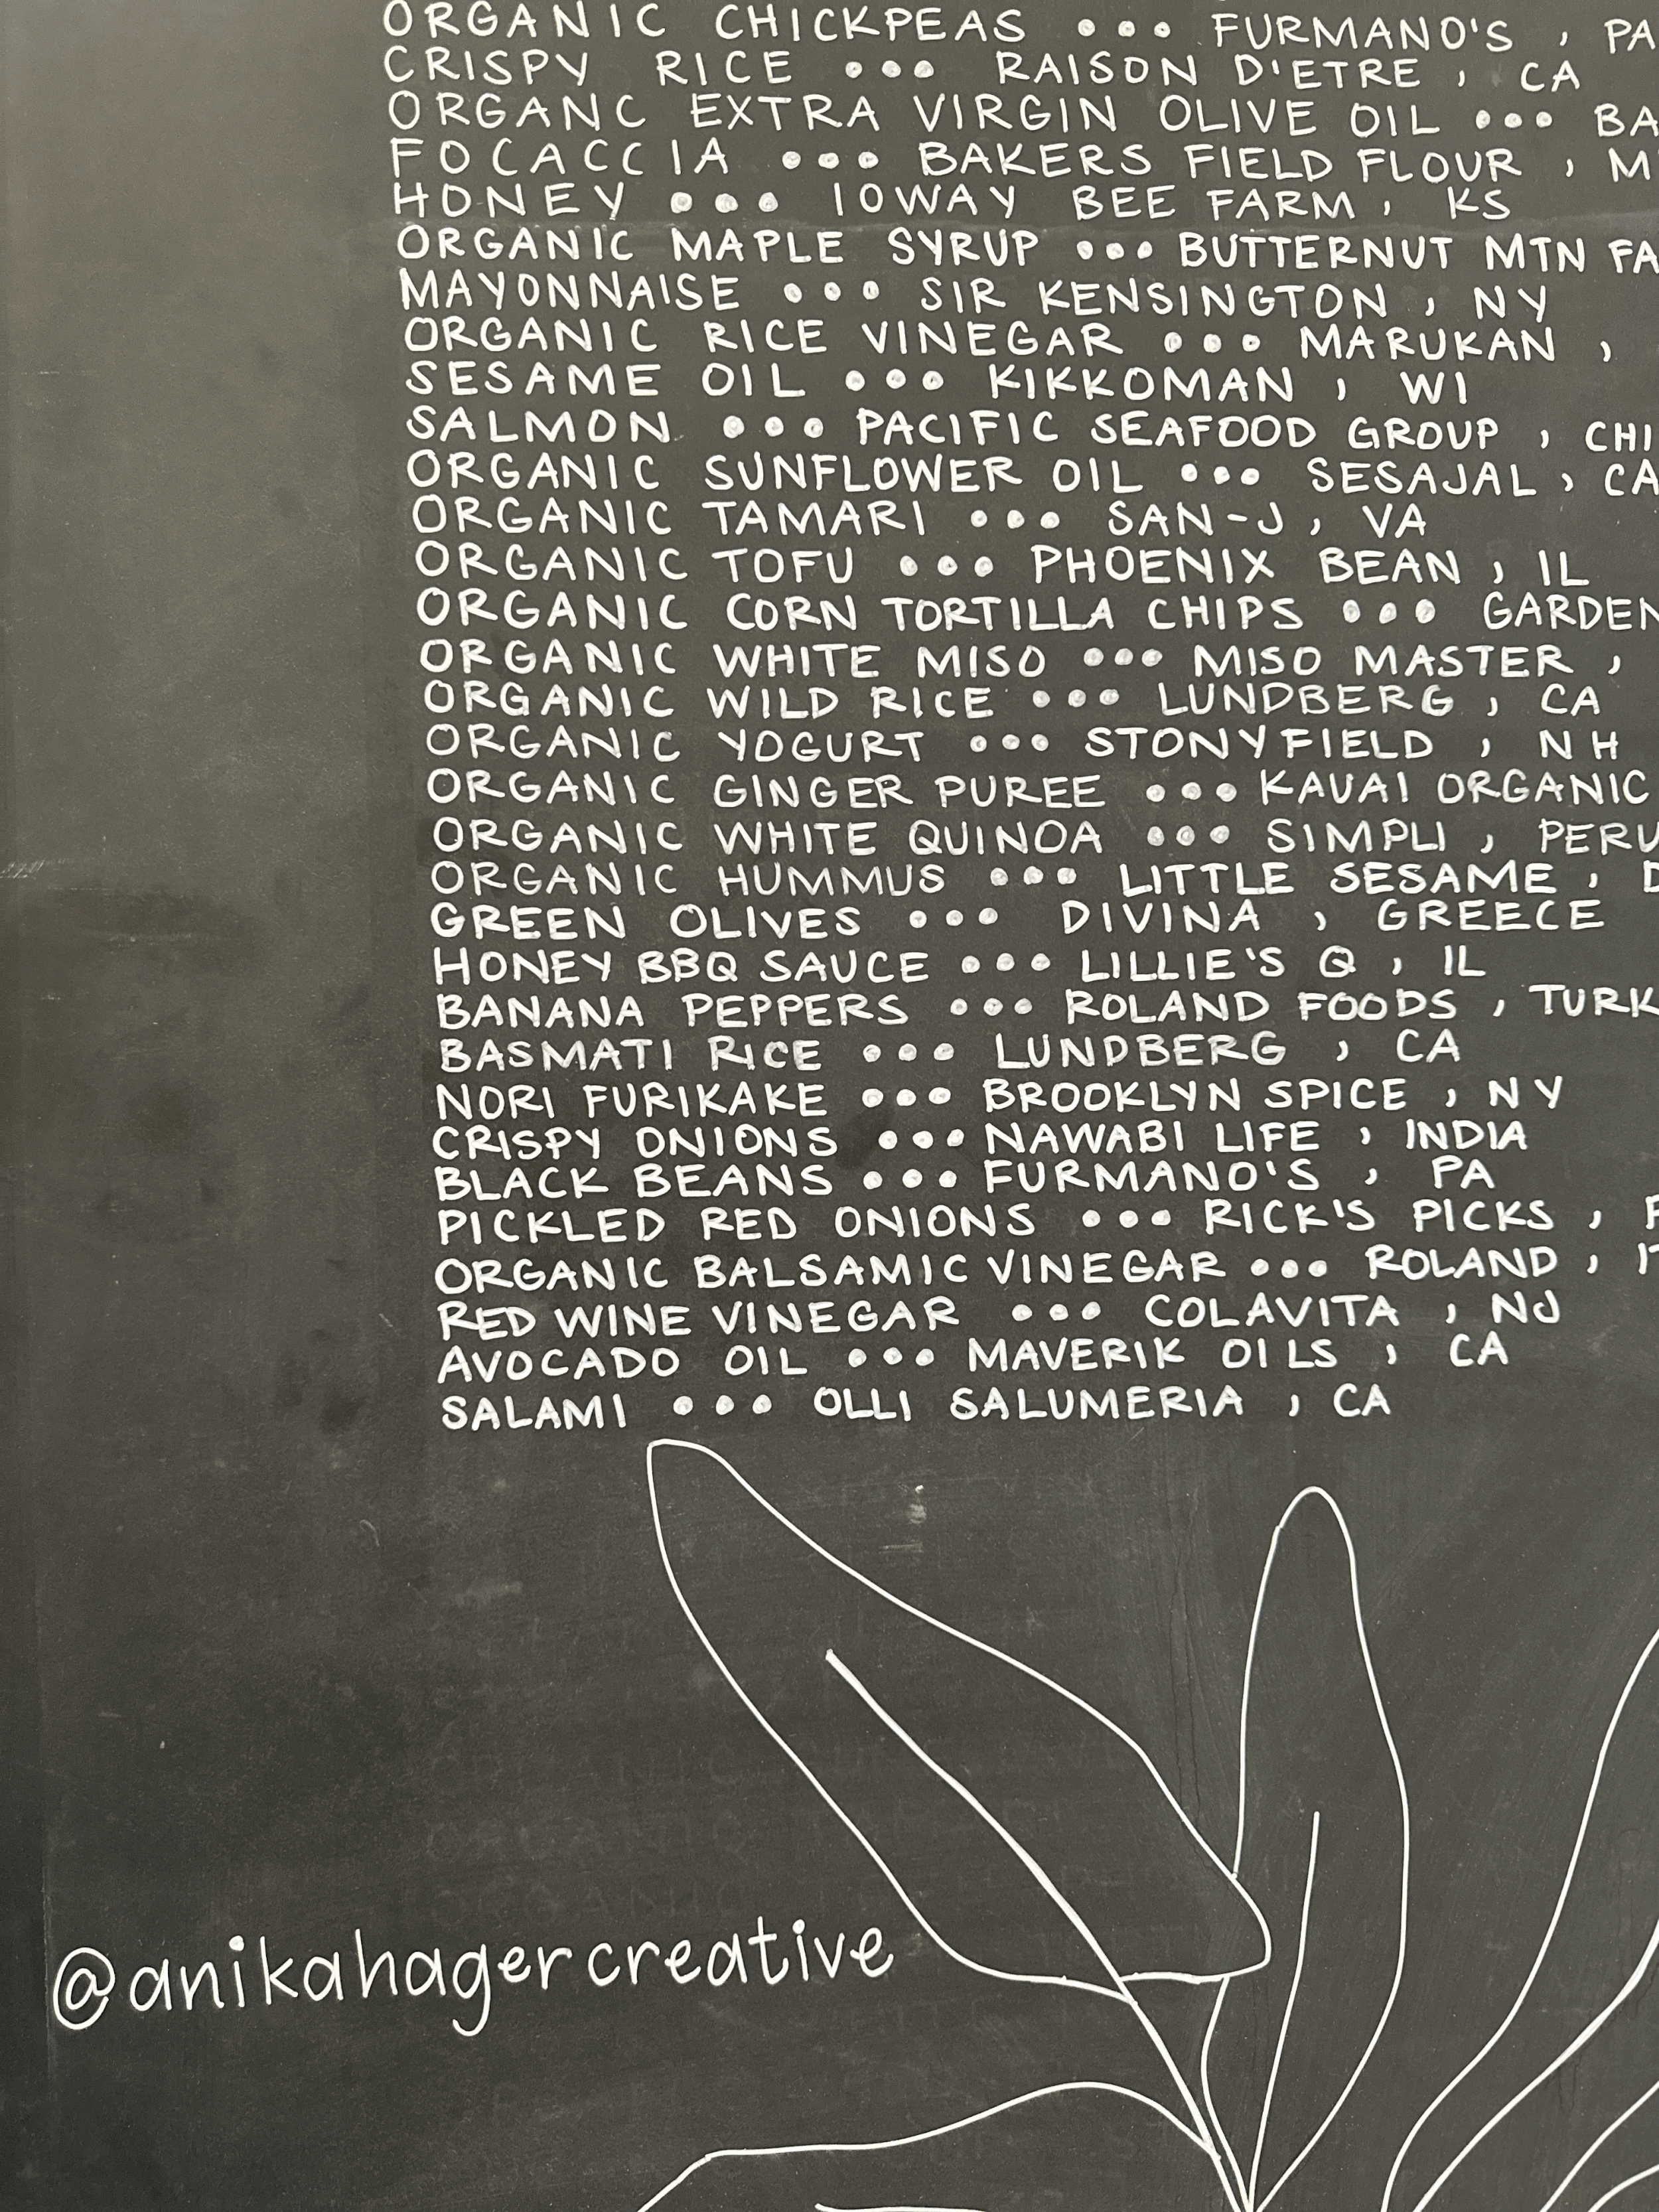 ORGANIC CHICKPEAS ••• FURMANO'S, PA
CRISPY RICE ••• RAISON D'ETRE, CA
ORGANC EXTRA VIRGIN OLIVE OIL ••• BA
FOCACCIA ••• BAKERS FIELD FLOUR, M
HONEY ••• IOWAY BEE FARM, KS
ORGANIC MAPLE SYRUP ••• BUTTERNUT MTN FA
MAYONNAISE ••• SIR KENSINGTON, NY
ORGANIC RICE VINEGAR ••• MARUKAN,
SESAME OIL ••• KIKKOMAN, WI
SALMON ••• PACIFIC SEAFOOD GROUP, CHI
ORGANIC SUNFLOWER OIL ••• SESAJAL, CA
ORGANIC TAMARI ••• SAN-J, VA
ORGANIC TOFU ••• PHOENIX BEAN, IL
ORGANIC CORN TORTILLA CHIPS ••• GARDEN
ORGANIC WHITE MISO ••• MISO MASTER,
ORGANIC WILD RICE ••• LUNDBERG, CA
ORGANIC YOGURT ••• STONYFIELD, NH
ORGANIC GINGER PUREE ••• KAUAI ORGANIC
ORGANIC WHITE QUINOA ••• SIMPLI, PERU
ORGANIC HUMMUS ••• LITTLE SESAME, D
GREEN OLIVES ••• DIVINA, GREECE
HONEY BBQ SAUCE ••• LILLIE'S Q, IL
BANANA PEPPERS ••• ROLAND FOODS, TURK
BASMATI RICE ••• LUNDBERG, CA
NORI FURIKAKE ••• BROOKLYN SPICE, NY
CRISPY ONIONS ••• NAWABI LIFE, INDIA
BLACK BEANS ••• FURMANO'S, PA
PICKLED RED ONIONS ••• RICK'S PICKS, P
ORGANIC BALSAMIC VINEGAR ••• ROLAND, IT
RED WINE VINEGAR ••• COLAVITA, NJ
AVOCADO OIL ••• MAVERIK OILS, CA
SALAMI ••• OLLI SALUMERIA, CA
@anikahagercreative